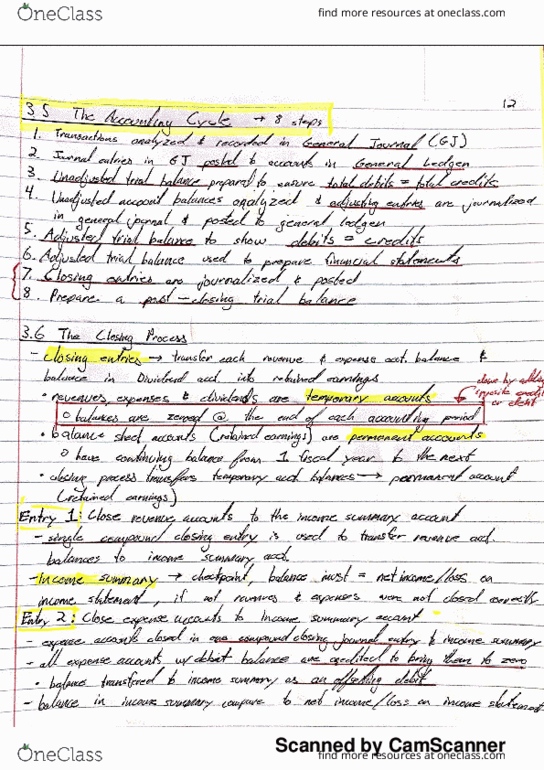 OneClass
find more resources at oneclass.com
12
3.5 The Accounting Cycle → 8 steps
1. Transactions analyzed & recorded in General Journal (GJ)
2. Journal entries in GJ posted to accounts in General Ledger
3. Unadjusted trial balance prepared to ensure total debits = total credits
4. Unadjusted account balances analyzed & adjusting entries are journalized
in general journal & posted to general ledger
5. Adjusted trial balance to show debits = credits
6. Adjusted trial balance used to prepare financial statements
7. Closing entries are journalized & posted
8. Prepare a post-closing trial balance
3.6 The Closing Process
- closing entries → transfer each revenue & expense acct. balance &
balance in Dividend acct. into retained earnings
done by adding
• revenues, expenses & dividends are temporary accounts
opposite credit
or debit
o balances are zeroed @ the end of each accounting period
• balance sheet accounts (retained earnings) are permanent accounts
o have continuing balance from 1 fiscal year to the next
• closing process transfers temporary acct balances → permanent account
(retained earnings)
Entry 1: Close revenue accounts to the income summary account
- single compound closing entry is used to transfer revenue acct.
balances to income summary acct.
- Income summary → checkpoint, balance must = net income/loss on
income statement, if not revenues & expenses were not closed correctly
Entry 2: Close expense accounts to Income summary account
- expense accounts closed in one compound closing journal entry to income summary
- all expense accounts w/ debit balance are credited to bring them to zero
• balance transferred to income summary as an offsetting debit
- balance in income summary compare to net income/loss on income statement
Scanned by CamScanner
OneClass
find more resources at oneclass.com